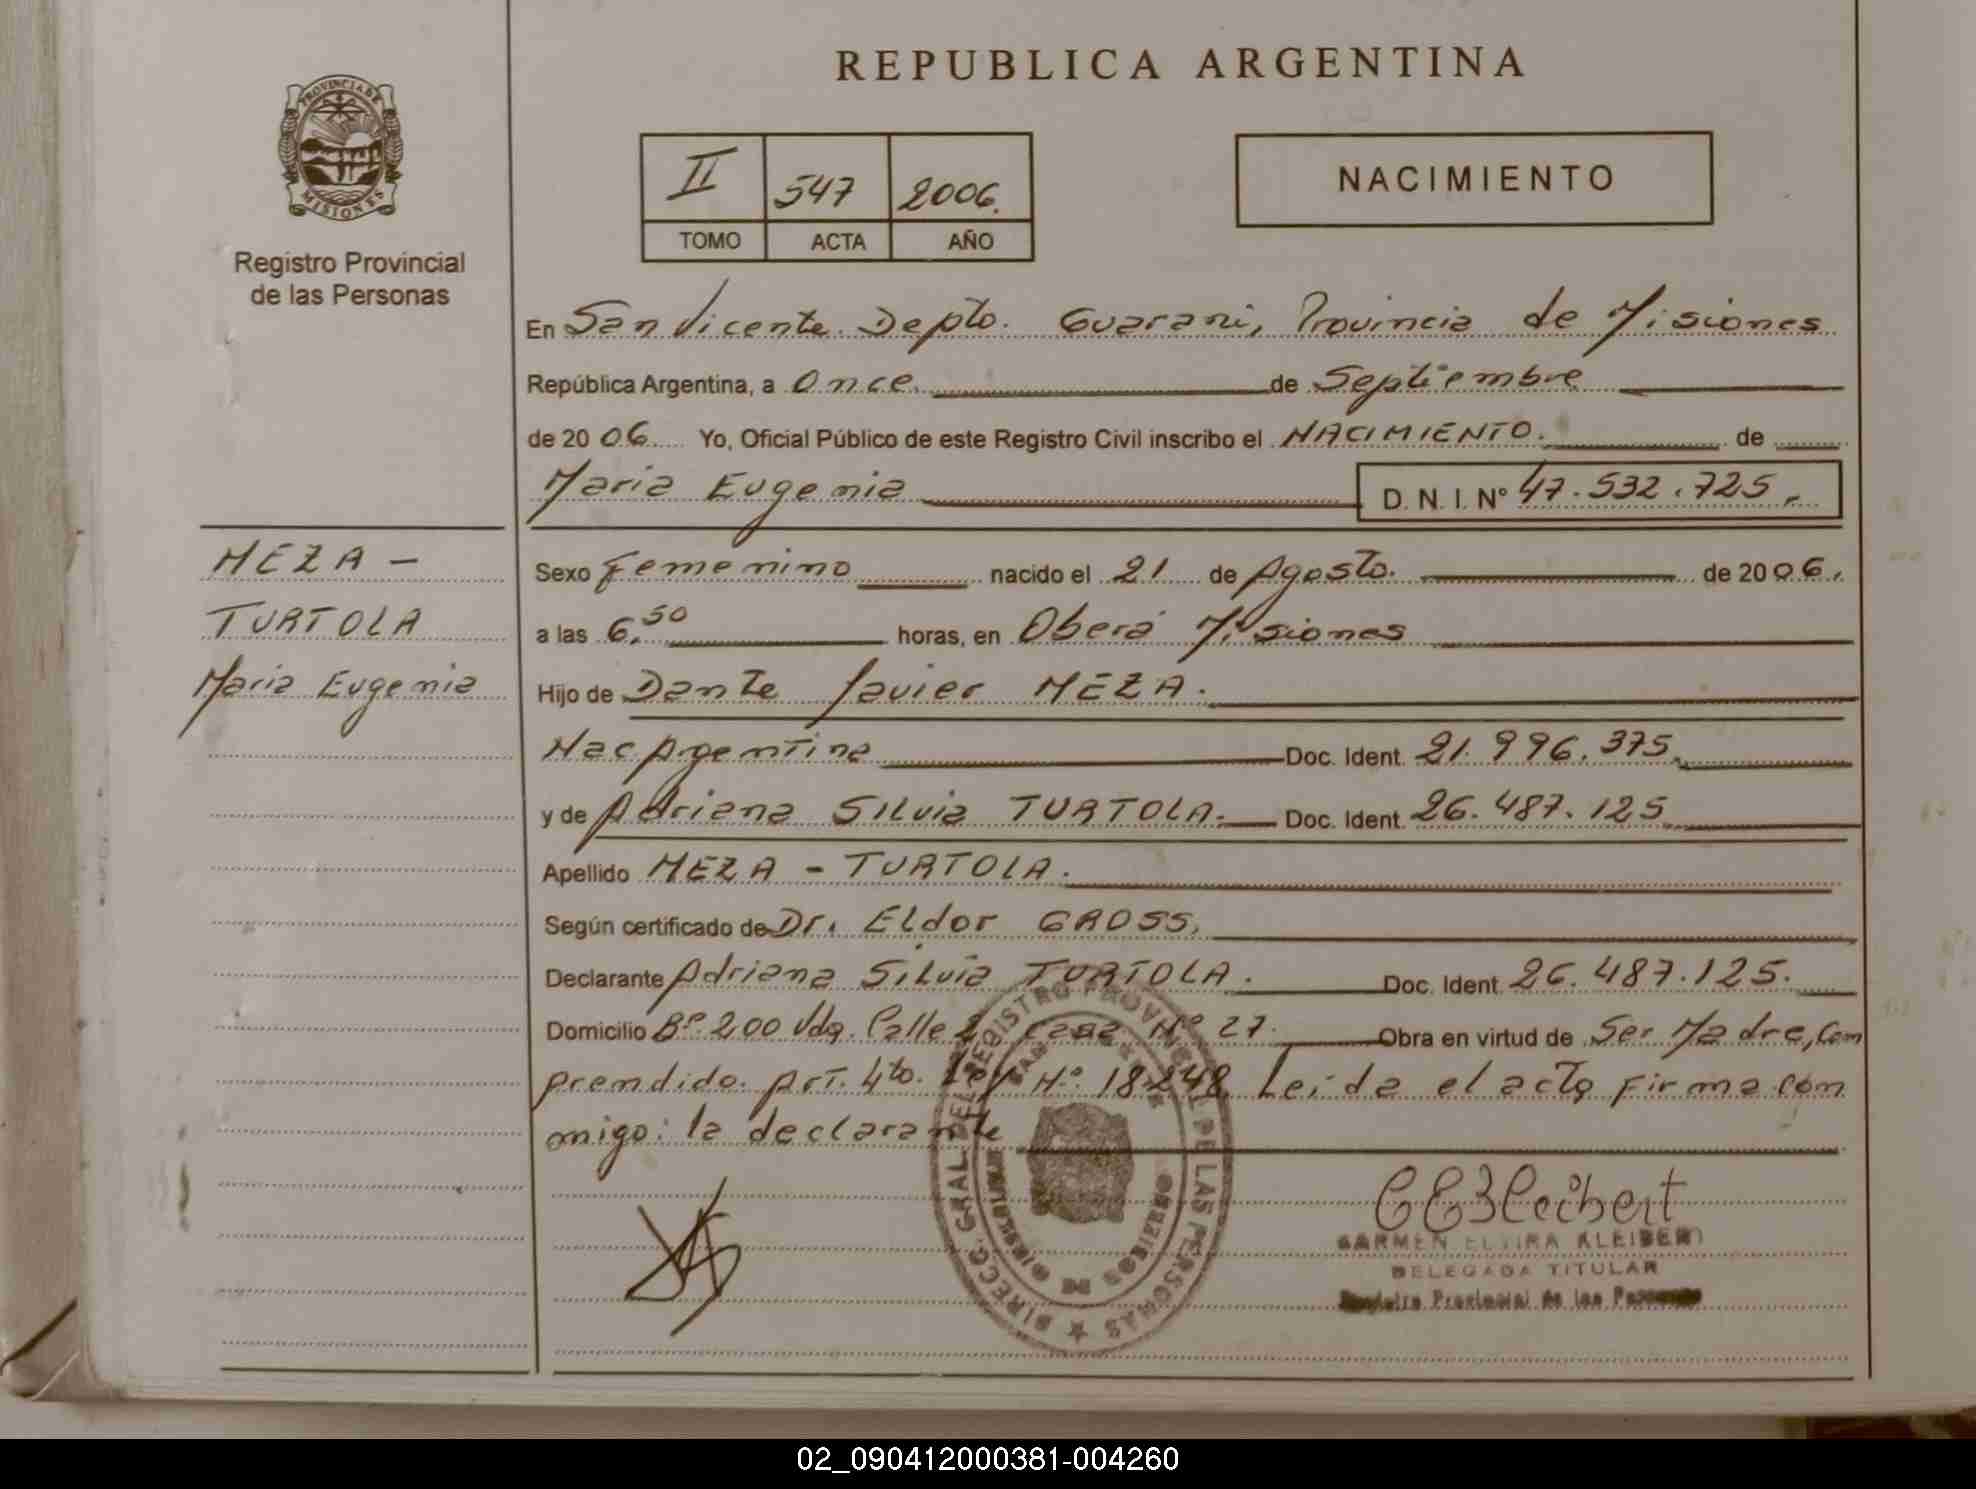 REPUBLICA ARGENTINA
PROVINCIA DE
MISIONES
Registro Provincial
de las Personas
II 547 2006.
TOMO ACTA AÑO
NACIMIENTO
En San Vicente. Depto. Guarani, Provincia de Misiones
República Argentina, a Once. de Septiembre
de 2006 Yo, Oficial Público de este Registro Civil inscribo el NACIMIENTO. de
Maria Eugenia D. N. I. Nº 47.532.725.
MEZA -
TURTOLA
Maria Eugenia
Sexo Femenino nacido el 21 de Agosto. de 2006.
a las 6,50 horas, en Oberá Misiones
Hijo de Dante Javier MEZA.
Nac Argentina Doc. Ident. 21.996.375
y de Adriana Silvia TURTOLA. Doc. Ident. 26.487.125
Apellido MEZA - TURTOLA.
Según certificado de Dr. Eldor GROSS,
Declarante Adriana Silvia TURTOLA. Doc. Ident. 26.487.125.
Domicilio Bº 200 Vdas. Calle 2 casa Nº 27. Obra en virtud de Ser Madre, Com
prendido. Art. 4to. Ley Nº 18.248. Leida el acta firma con
migo: la declarante
DIRECC. GRAL. DEL REGISTRO PROVINCIAL DE LAS PERSONAS
SAN VICENTE
MISIONES
CARMEN ELVIRA KLEIBERT
DELEGADA TITULAR
Registro Provincial de las Personas
02_090412000381-004260